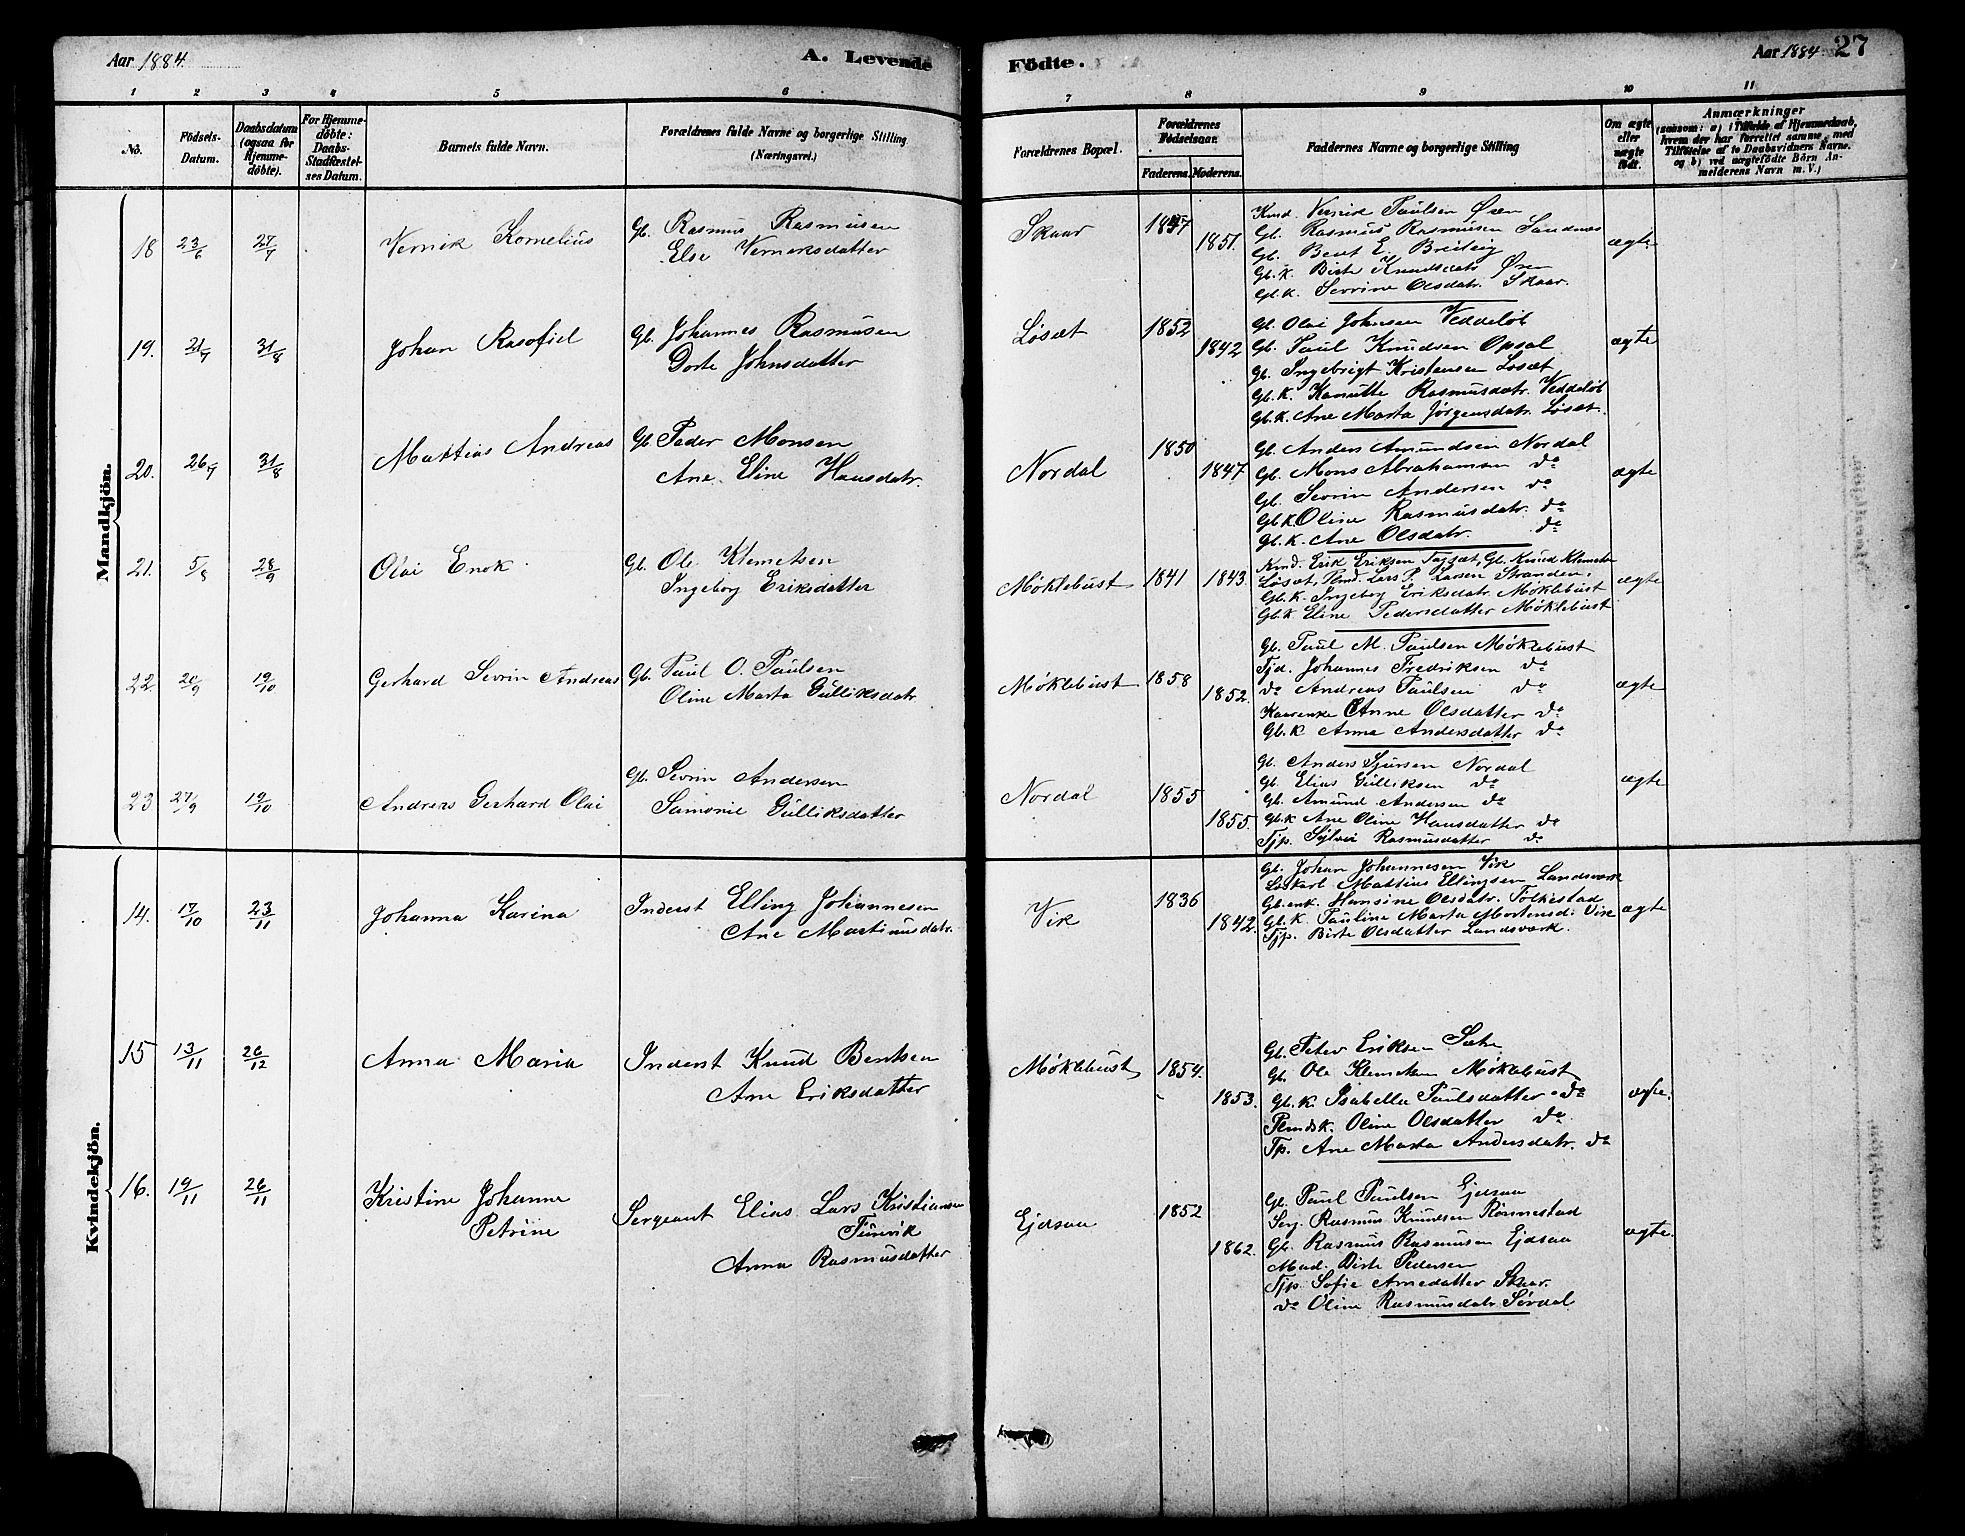 Aar 1884.
A. Levende
Födte.
Aar 1884.
27
1 2 3 4 5 6 7 8 9 10 11
No.
Födsels-
Datum.
Daabsdatum
(ogsaa for
Hjemme-
döbte).
For Hjemme-
døbte:
Daabs-
Stadfæstel-
ses Datum.
Barnets fulde Navn.
Forældrenes fulde Navne og borgerlige Stilling
(Næringsvei.)
Forældrenes Bopæl.
Forældrenes
Födselsaar.
Faderens. Moderens.
Faddernes Navne og borgerlige Stilling
Om ægte
eller
uægte
født.
Anmærkninger
(saasom: a) i Tilfælde af Hjemmedaab,
hvem der har forrettet samme, med
Tilföielse af to Daabsvidners Navne.
og b) ved uægtefödte Börn An-
melderens Navn m. V.)
Mandkjön.
18 23/6 27/7
Vernik Kornelius
Gb. Rasmus Rasmusen
Else Verniksdatter
Skaar
1857
1851.
Kmd. Vernik Paulsen Øren
Gb. Rasmus Rasmusen Sandnes
Gb. Bent E. Breiteig
Gb.k. Birte Knudsdatr. Øren
Gb.k. Sevrine Olsdatr. Skaar.
ægte
19. 21/7 31/8
Johan Rasofiel
Gb. Johannes Rasmusen
Dorte Johnsdatter
Løsæt
1852
1842
Gb. Olai Johnsen Veddeløb
Gb. Paul Knudsen Opsal
Gb. Ingebrigt Kristensen Løsæt
Gb.k. Kanutte Rasmusdatr. Veddeløb
Gb.k. Ane Marta Jørgensdatr. Løsæt.
ægte
20. 26/7 31/8
Mattias Andreas
Gb. Peder Monsen
Ane Eline Hansdatr.
Nordal
1850
1847
Gb. Anders Amundsen Nordal
Gb. Mons Abrahamsen do
Gb. Sevrin Andersen do
Gb.k. Oline Rasmusdatr. do
Gb.k. Ane Olsdatr. do
ægte
21. 5/8 28/9
Olai Enok
Gb. Ole Klemetsen
Ingeborg Eriksdatter
Møklebust
1841 1843
Kmd. Erik Eriksen, Gb. Knud Klemets
Løsæt, Pmd. Lars P. Larsen Stranden,
Gb.k. Ingeborg Eriksdatr. Møklebust
Gb.k. Eline Pedersdatter Møklebust
ægte
22 20/9 19/10
Gerhard Sevrin Andreas
Gb. Paul O. Paulsen
Oline Marta Gulliksdatr.
Møklebust
1858
1852.
Gb. Paul M. Paulsen Møklebust
Tjd. Johannes Fredriksen do
do Andreas Paulsen do
Kaarenke Anne Olsdatter do
Gb.k Anna Andersdatter do
ægte
23 27/9 19/10
Andreas Gerhard Olai
Gb. Sevrin Andersen
Samonie Gulliksdatter
Nordal
1855
1855.
Gb. Anders Sjursen Nordal
Gb. Elias Gulliksen do
Gb. Amund Andersen do
Gb.k Ane Oline Hansdatter do
Tjp. Sylvei Rasmusdatter do
ægte
Kvindekjön.
14. 17/10 23/11
Johanna Karina
Inderst Elling Johannesen
Ane Martinusdatr.
Vik
1836
1842.
Gb. Johan Johannesen Vik
Mattias Ellingsen Landsværk
Gb.enk. Hansine Olsdatr. Folkestad
Gb.k. Pauline Marta Mortensd. Vik
Tjp. Birte Olsdatter Landsværk.
ægte
15 13/11 26/12
Anna Maria
Inderst Knud Bentsen
Ane Eriksdatter
Møklebust
1854.
1853.
Gb. Peter Eriksen Sætre
Gb. Ole Klemetsen Møklebust
Gb.k. Isabella Paulsdatter do
Pmdsk. Oline Olsdatter do
Tp. Ane Marta Andersdatr. do
ægte.
16. 19/11 26/11
Kristine Johanne
Petrine
Sergeant Elias Lars Kristiansen
Turevik
Anna Rasmusdatter
Ejdsaa
1852
1862.
Gb. Paul Paulsen Ejdsaa
Serg. Rasmus Knudsen Rønnestad
Gb. Rasmus Rasmusen Ejdsaa
Mad. Birte Pedersen
Tjp. Sofie Arnedatter Skaar.
do Oline Rasmusdatr. Sørdal
ægte.